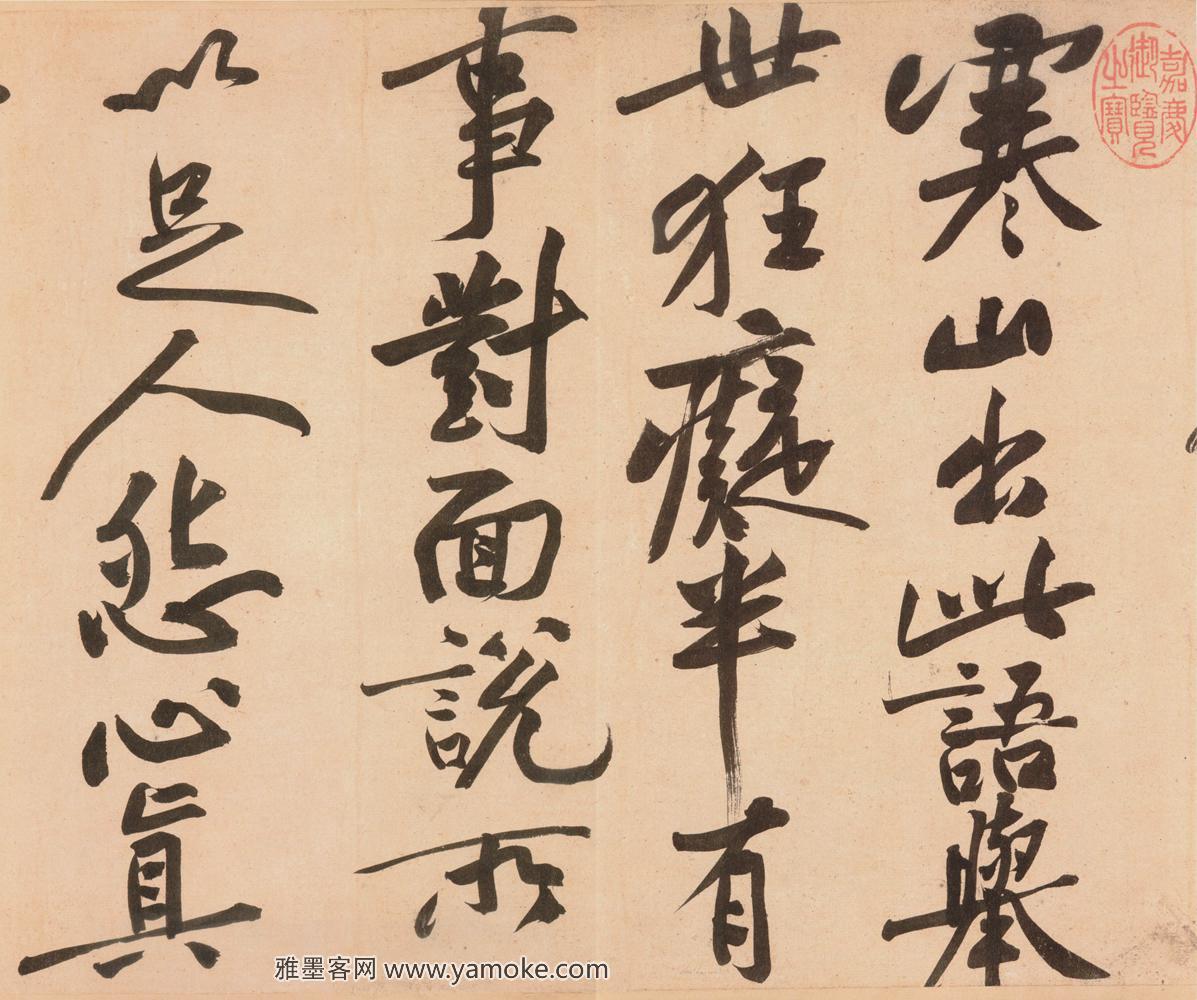 寒山出此語舉
世狂癡半有
事對面說所
以足人怨心真
嘉慶
御覽
之寶
雅墨客网 www.yamoke.com